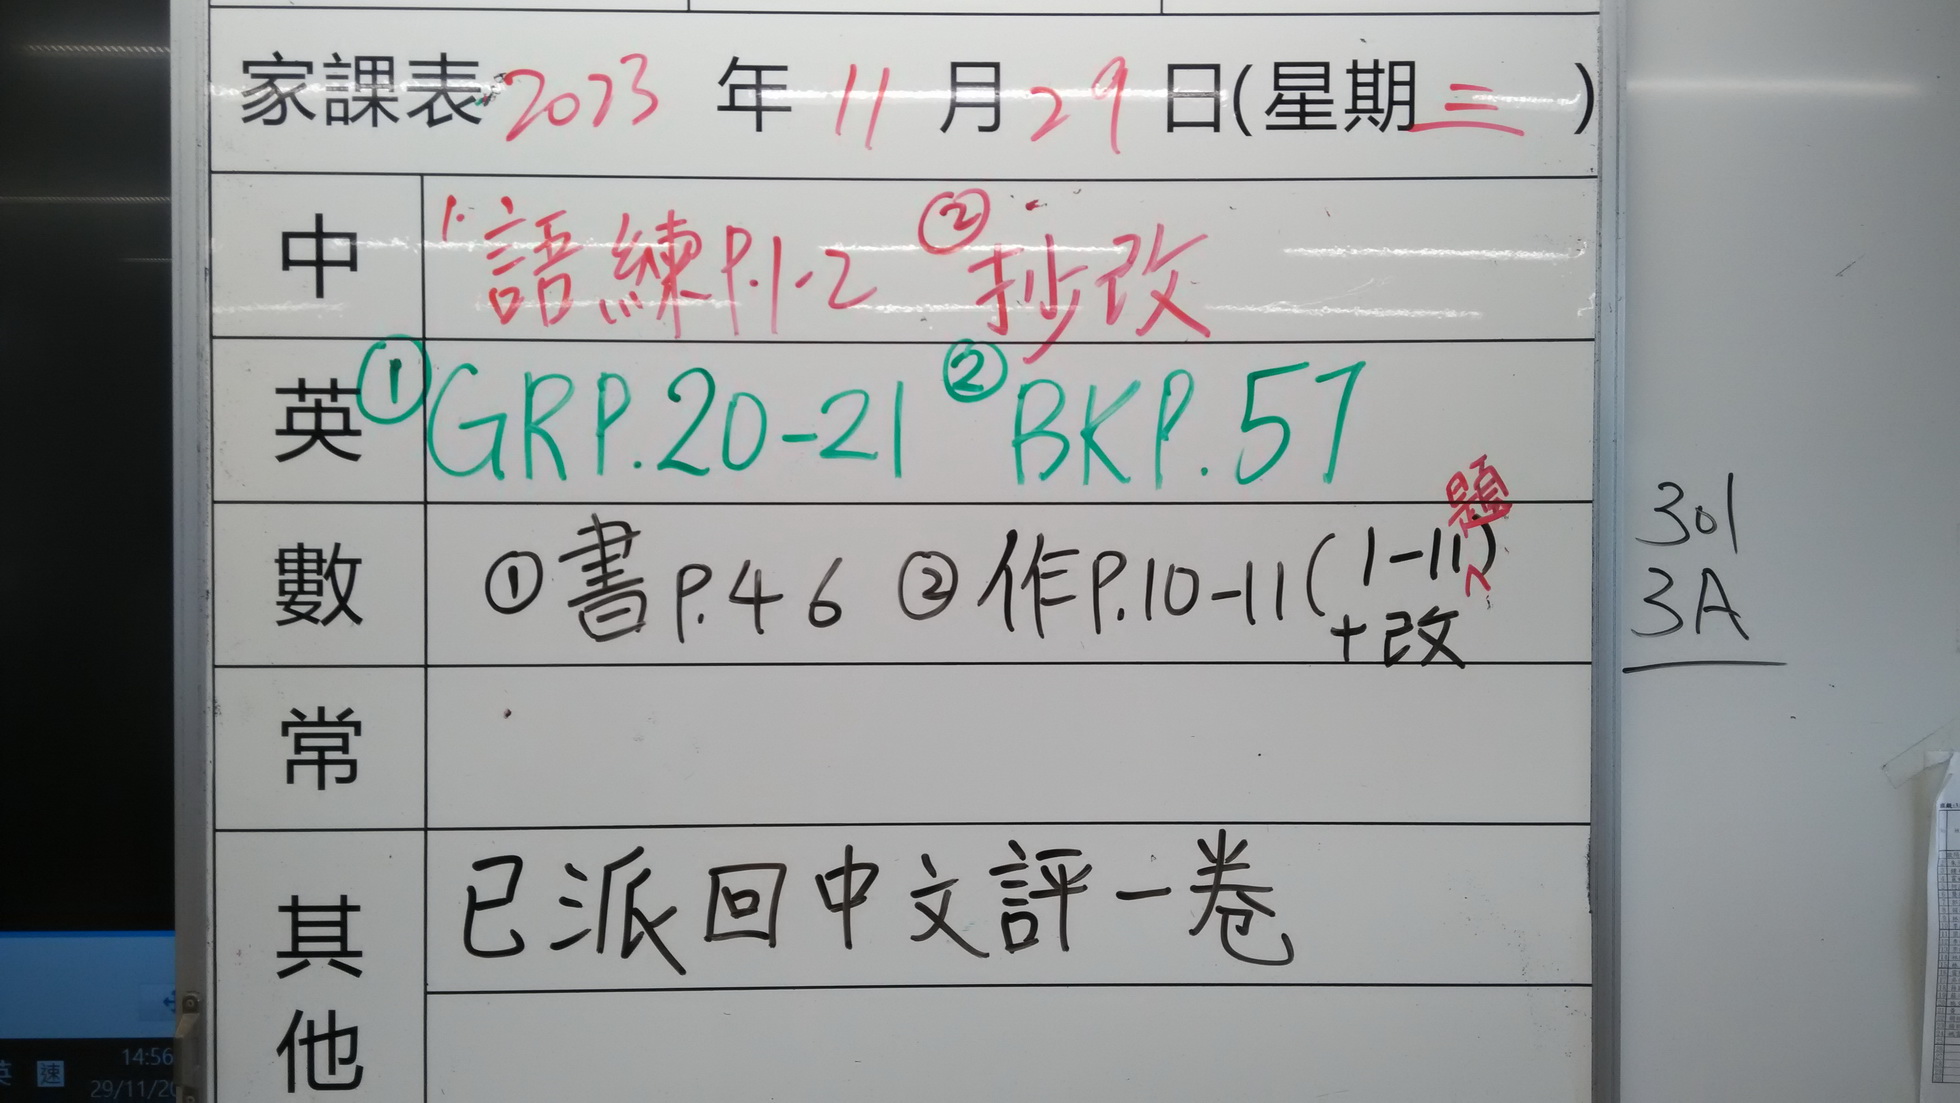 家課表 2023 年 11 月 29 日(星期三)
中 1. 語練P.1-2 ② 抄改
英 ① GR P.20-21 ② BK P.57
數 ① 書P.46 ② 作P.10-11(1-11題)
+改
常
其他 已派回中文評一卷
301
3A
英 速 14:56
29/11/20